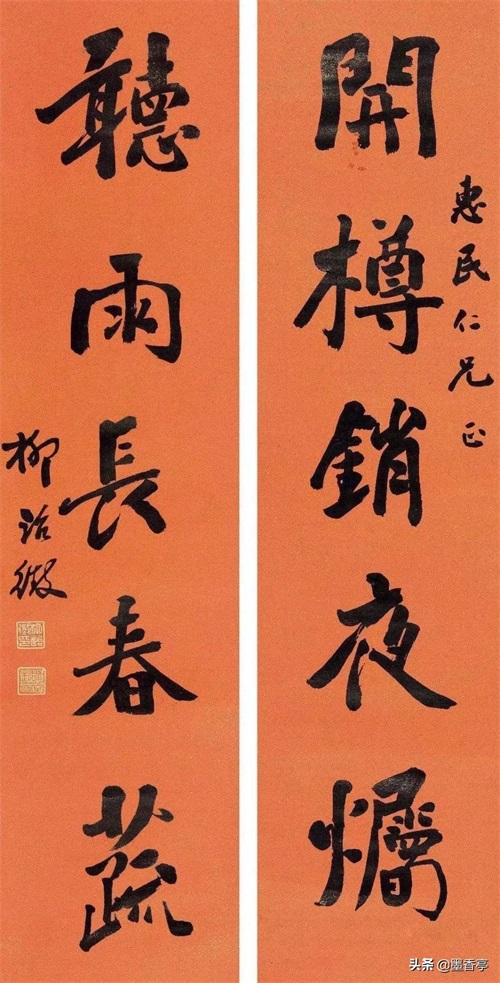 惠民仁兄正
開樽銷夜爥
聽雨長春蔬
柳詒徵
头条 @墨香亭